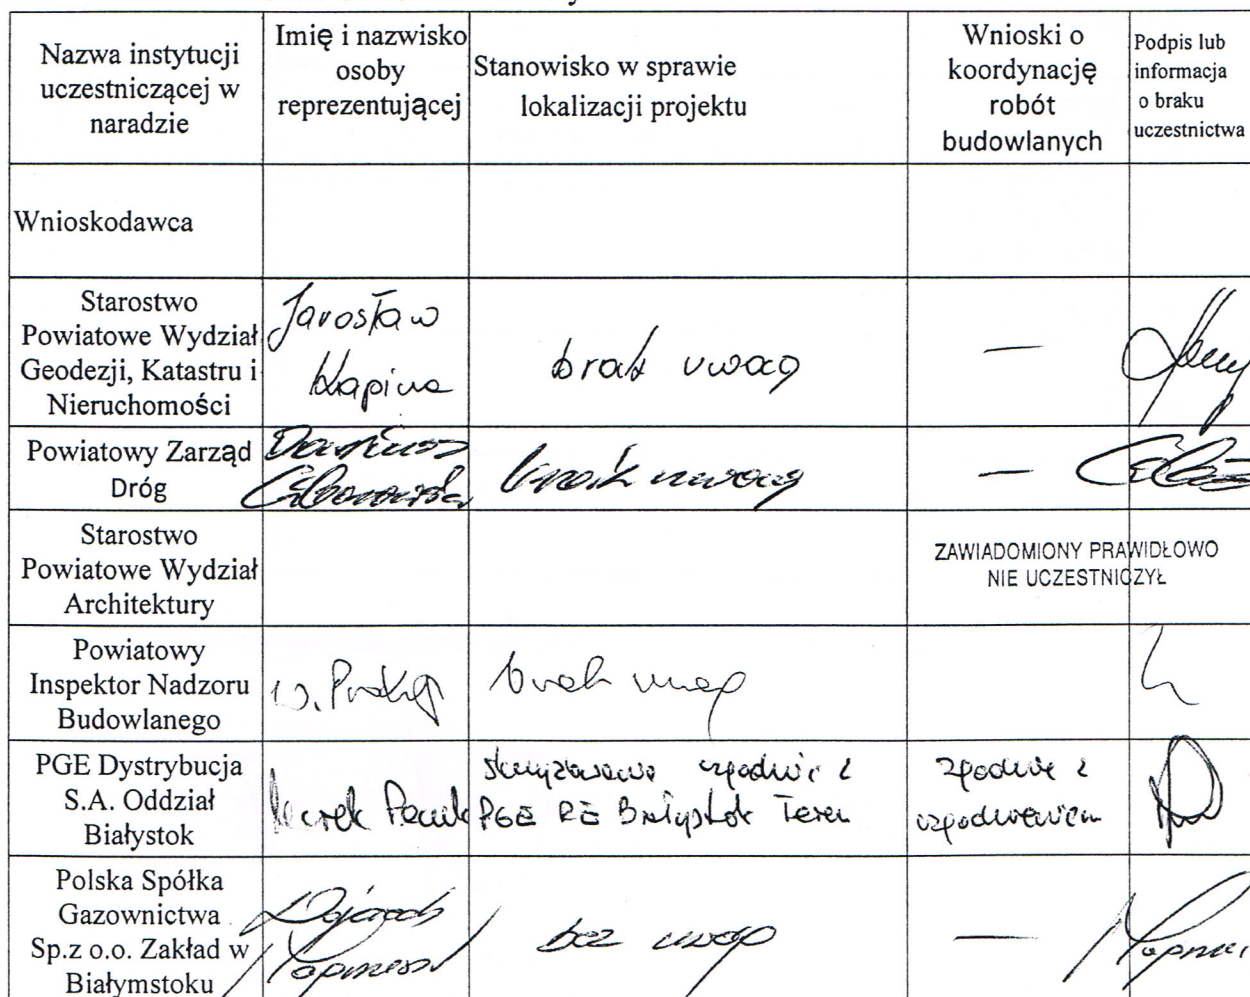 Nazwa instytucji
uczestniczącej w
naradzie
Imię i nazwisko
osoby
reprezentującej
Stanowisko w sprawie
lokalizacji projektu
Wnioski o
koordynację
robót
budowlanych
Podpis lub
informacja
o braku
uczestnictwa
Wnioskodawca
Starostwo
Powiatowe Wydział
Geodezji, Katastru i
Nieruchomości
Jarosław
Kapina
brak uwag
—
Powiatowy Zarząd
Dróg
Dariusz
brak uwag
—
Starostwo
Powiatowe Wydział
Architektury
ZAWIADOMIONY PRAWIDŁOWO
NIE UCZESTNICZYŁ
Powiatowy
Inspektor Nadzoru
Budowlanego
W.
brak uwag
PGE Dystrybucja
S.A. Oddział
Białystok
Marek
skrzyżowania uzgodnić z
PGE RE Białystok Teren
zgodnie z
uzgodnieniem
Polska Spółka
Gazownictwa
Sp.z o.o. Zakład w
Białymstoku
bez uwag
—